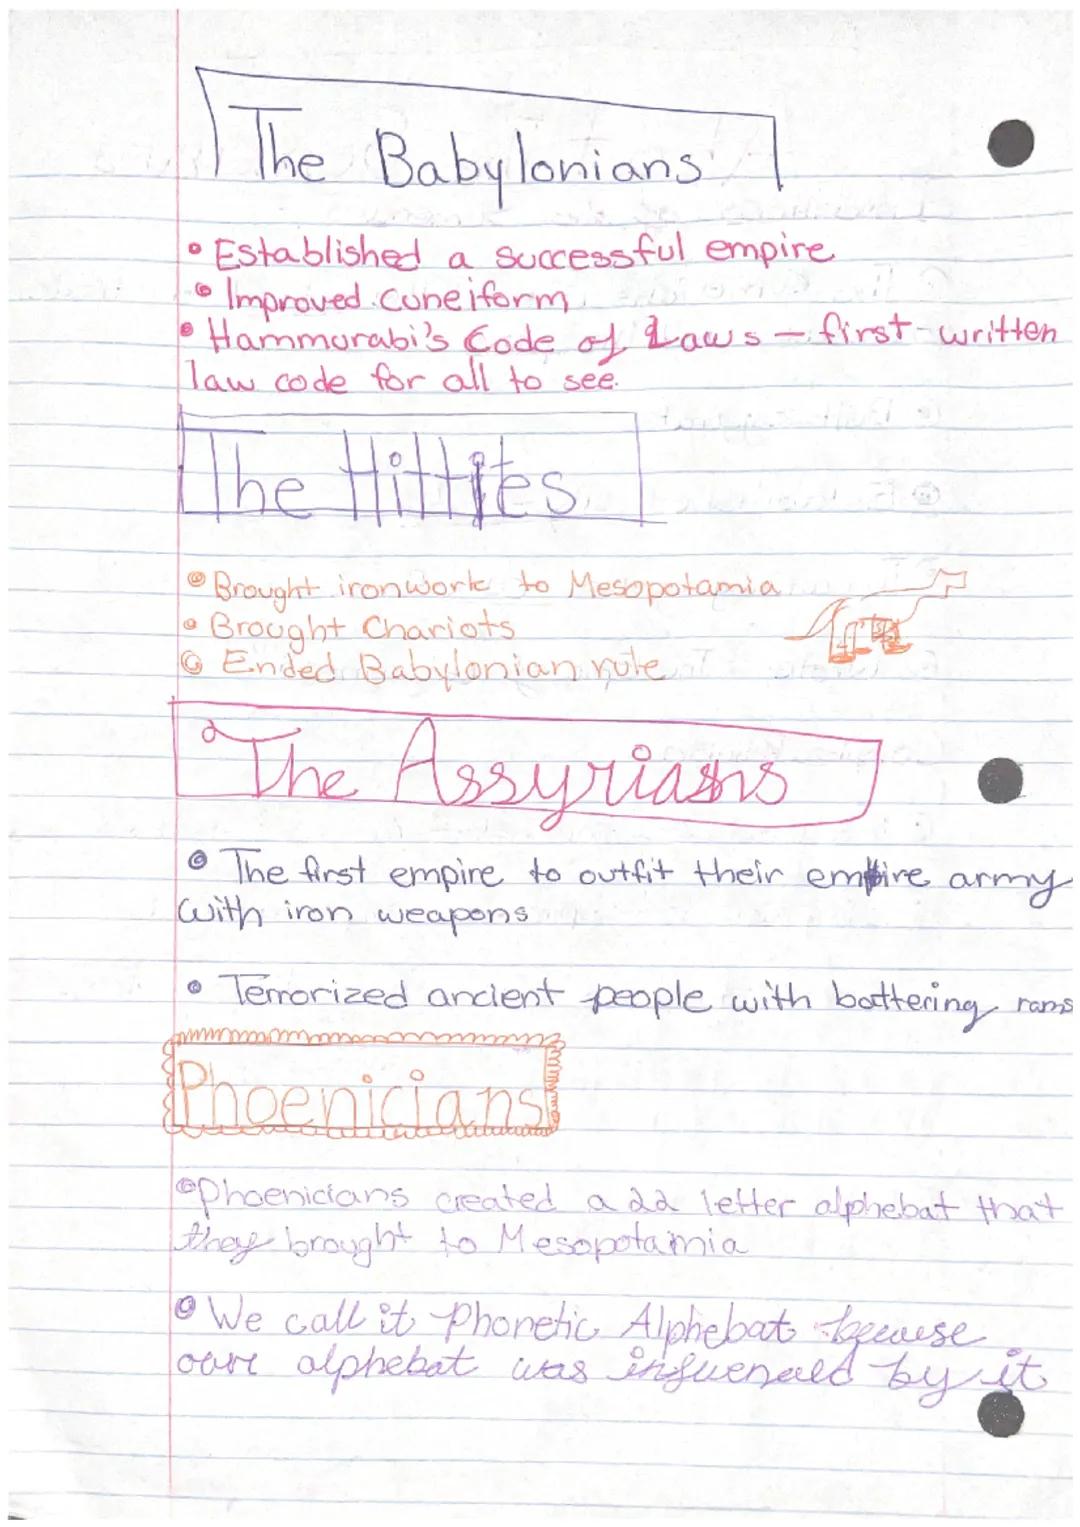 The Babylonians
• Established a successful empire
• Improved cuneiform
• Hammurabi's Code of Laws - first written
law code for all to see.
The Hittites
• Brought ironwork to Mesopotamia
• Brought Chariots
• Ended Babylonian rule
The Assyrians
• The first empire to outfit their empire army
with iron weapons
• Terrorized ancient people with battering rams
Phoenicians
• Phoenicians created a 22 letter alphebat that
they brought to Mesopotamia
• We call it Phonetic Alphebat because
oure alphebat was infuenced by it